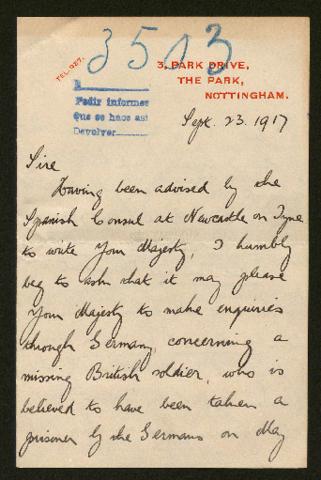 3513
TEL. 927.
3, PARK DRIVE,
THE PARK,
NOTTINGHAM.
R
Pedir informes
Que se hace así
Devolver
Sept. 23. 1917
Sire
Having been advised by the
Spanish Consul at Newcastle on Tyne
to write Your Majesty, I humbly
beg to ask that it may please
Your Majesty to make enquiries
through Germany, concerning a
missing British soldier, who is
believed to have been taken a
prisoner by the Germans on May